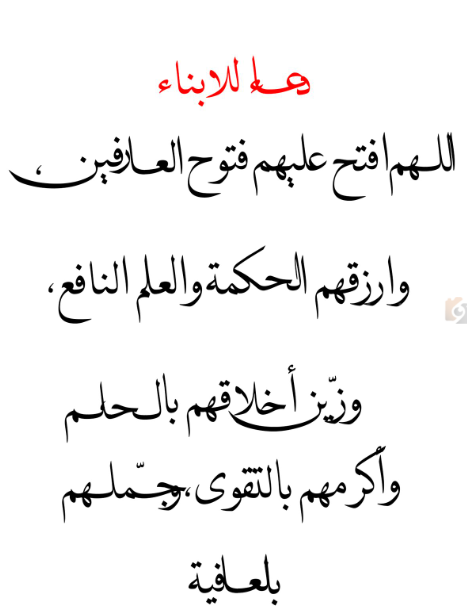 دعاء للابناء
اللهم افتح عليهم فتوح العارفين،
وارزقهم الحكمة والعلم النافع،
وزيّن أخلاقهم بالحلم
وأكرمهم بالتقوى،وجمّلهم
بلعافية